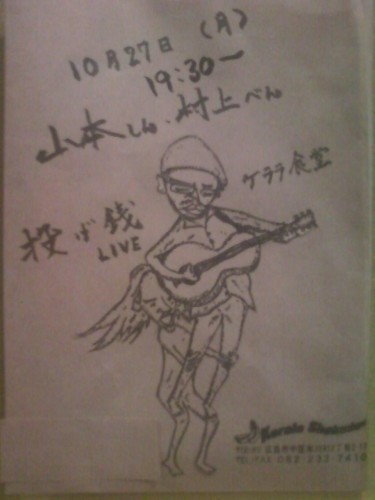 10月27日 (月)
19:30〜
山本しん、村上べん
ケララ食堂
投げ銭
LIVE
Kerala Shokudou
TEL/FAX 082-232-7430